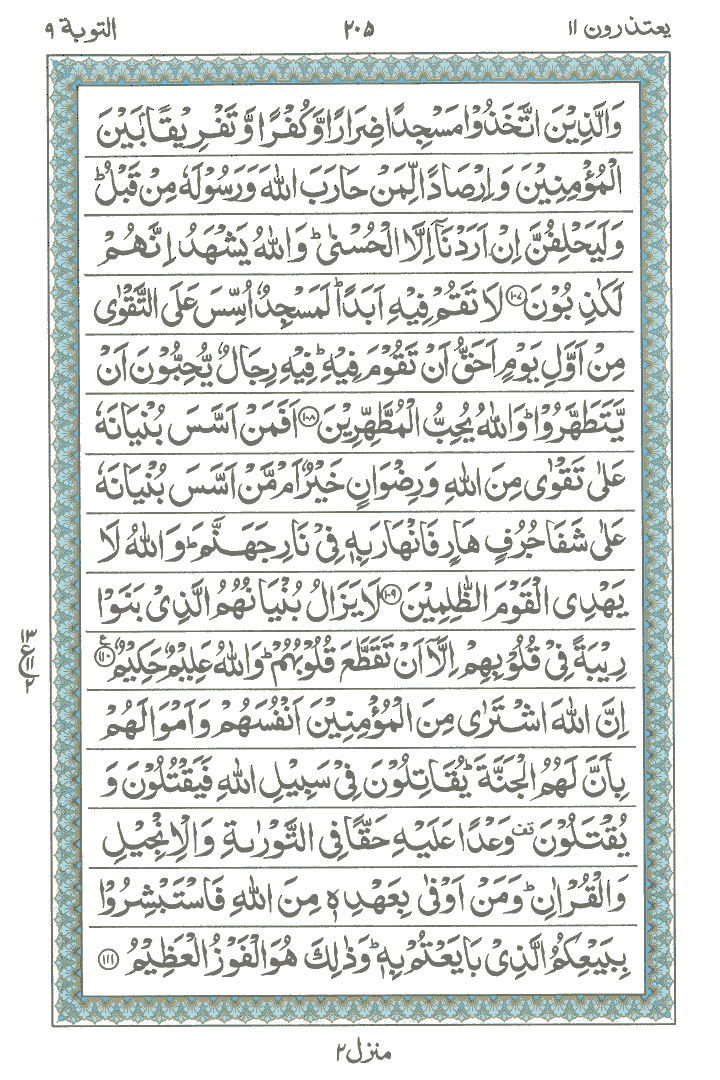 يعتذرون ١١ ٢٠٥ التوبة ٩
وَالَّذِيْنَ اتَّخَذُوْا مَسْجِدًا ضِرَارًا وَّكُفْرًا وَّ تَفْرِيْقًۢا بَيْنَ
الْمُؤْمِنِيْنَ وَ اِرْصَادًا لِّمَنْ حَارَبَ اللّٰهَ وَ رَسُوْلَهٗ مِنْ قَبْلُ ؕ
وَ لَيَحْلِفُنَّ اِنْ اَرَدْنَاۤ اِلَّا الْحُسْنٰى ؕ وَ اللّٰهُ يَشْهَدُ اِنَّهُمْ
لَكٰذِبُوْنَ ۝۱۰۷ لَا تَقُمْ فِيْهِ اَبَدًا ؕ لَمَسْجِدٌ اُسِّسَ عَلَى التَّقْوٰى
مِنْ اَوَّلِ يَوْمٍ اَحَقُّ اَنْ تَقُوْمَ فِيْهِ ؕ فِيْهِ رِجَالٌ يُّحِبُّوْنَ اَنْ
يَّتَطَهَّرُوْا ؕ وَ اللّٰهُ يُحِبُّ الْمُطَّهِّرِيْنَ ۝۱۰۸ اَفَمَنْ اَسَّسَ بُنْيَانَهٗ
عَلٰى تَقْوٰى مِنَ اللّٰهِ وَ رِضْوَانٍ خَيْرٌ اَمْ مَّنْ اَسَّسَ بُنْيَانَهٗ
عَلٰى شَفَا جُرُفٍ هَارٍ فَانْهَارَ بِهٖ فِيْ نَارِ جَهَنَّمَ ؕ وَ اللّٰهُ لَا
يَهْدِى الْقَوْمَ الظّٰلِمِيْنَ ۝۱۰۹ لَا يَزَالُ بُنْيَانُهُمُ الَّذِيْ بَنَوْا
رِيْبَةً فِيْ قُلُوْبِهِمْ اِلَّاۤ اَنْ تَقَطَّعَ قُلُوْبُهُمْ ؕ وَ اللّٰهُ عَلِيْمٌ حَكِيْمٌ ۝۱۱۰ ع
١٣
ع
١١
٢
اِنَّ اللّٰهَ اشْتَرٰى مِنَ الْمُؤْمِنِيْنَ اَنْفُسَهُمْ وَ اَمْوَالَهُمْ
بِاَنَّ لَهُمُ الْجَنَّةَ ؕ يُقَاتِلُوْنَ فِيْ سَبِيْلِ اللّٰهِ فَيَقْتُلُوْنَ وَ
يُقْتَلُوْنَ قف وَعْدًا عَلَيْهِ حَقًّا فِى التَّوْرٰىةِ وَ الْاِنْجِيْلِ
وَ الْقُرْاٰنِ ؕ وَ مَنْ اَوْفٰى بِعَهْدِهٖ مِنَ اللّٰهِ فَاسْتَبْشِرُوْا
بِبَيْعِكُمُ الَّذِيْ بَايَعْتُمْ بِهٖ ؕ وَ ذٰلِكَ هُوَ الْفَوْزُ الْعَظِيْمُ ۝۱۱۱
منزل ٢